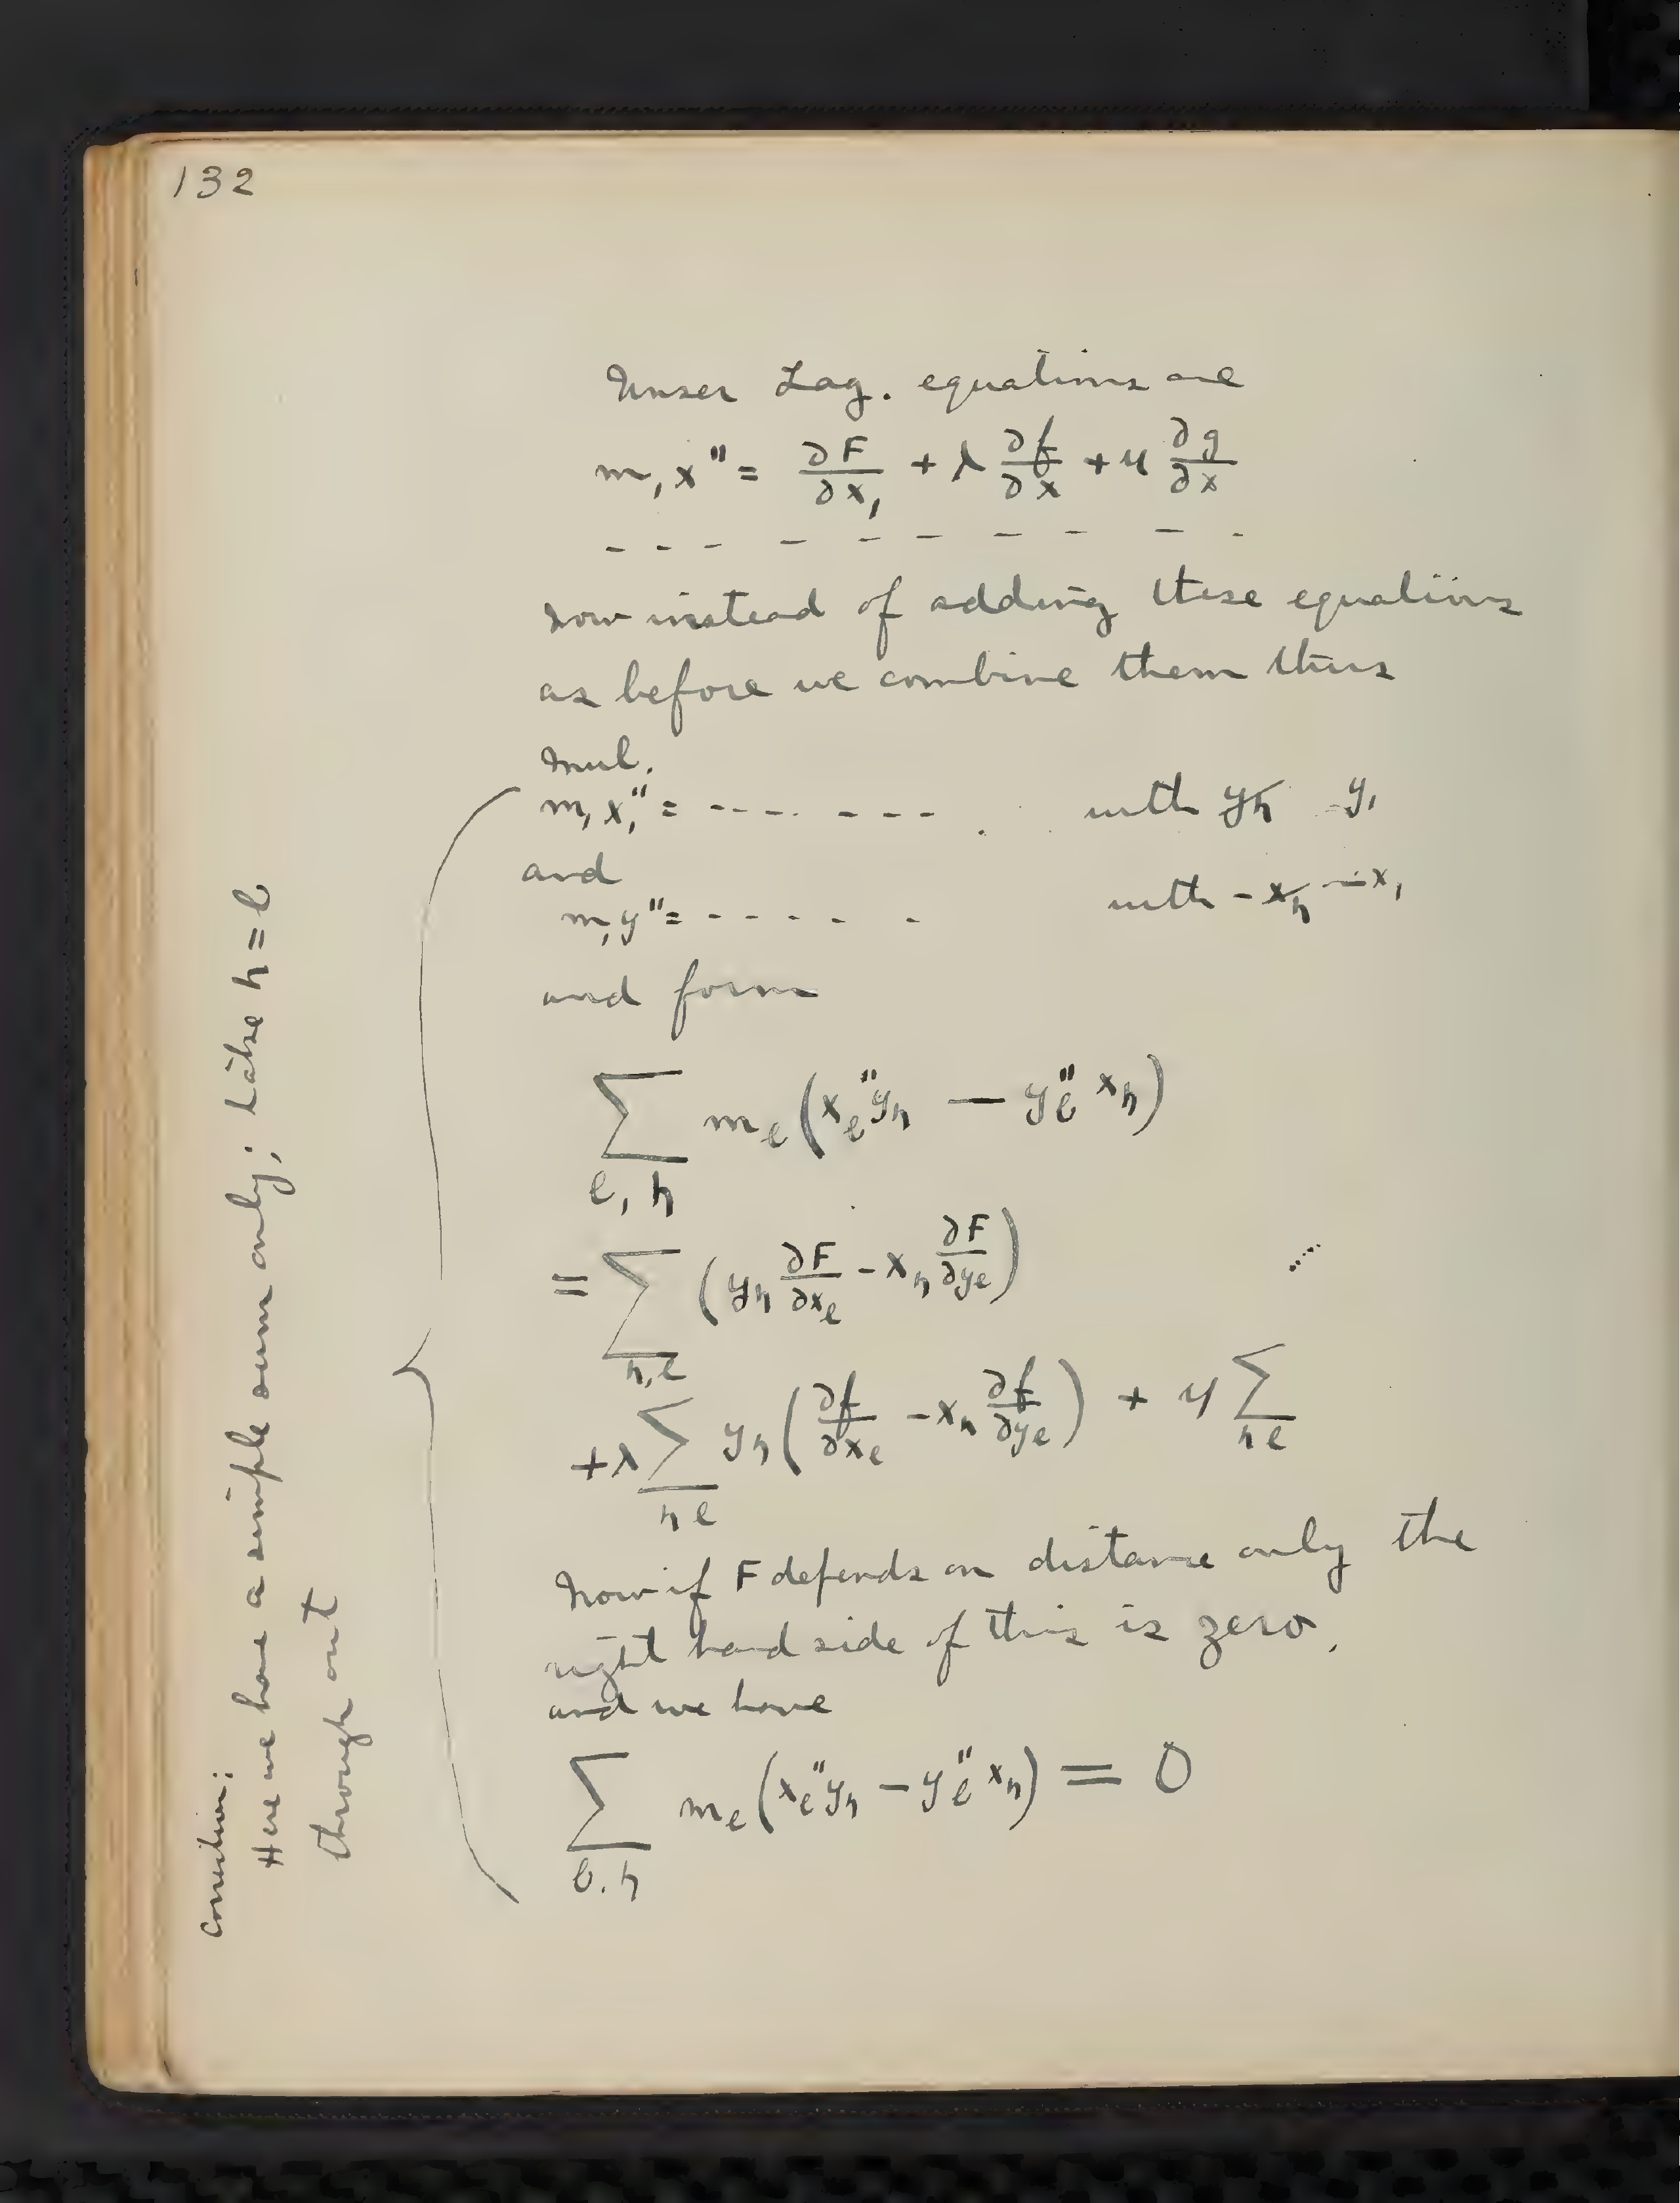 132
Unser Lag. equations are
m₁x" = ∂F/∂x₁ + λ ∂f/∂x + μ ∂g/∂x
- - - - - - - - - -
now instead of adding these equations
as before we combine them thus
Mul.
m₁x₁" = - - - - - - - . with y̶h̶ y₁
and
m₁y" = - - - - - - with - x̶h̶ - x₁
and form
∑ l, h mₗ (xₗ" yₕ — yₗ" xₕ)
= ∑ h,l (yₕ ∂F/∂xₗ - xₕ ∂F/∂yₗ)
+ λ ∑ h l yₕ (∂f/∂xₗ - xₕ ∂f/∂yₗ) + μ ∑ h l
Now if F depends on distance only the
right hand side of this is zero,
and we have
∑ l, h mₗ (xₗ" yₕ - yₗ" xₕ) = 0
Correction:
Here we have a simple sum only; take h = l
through out